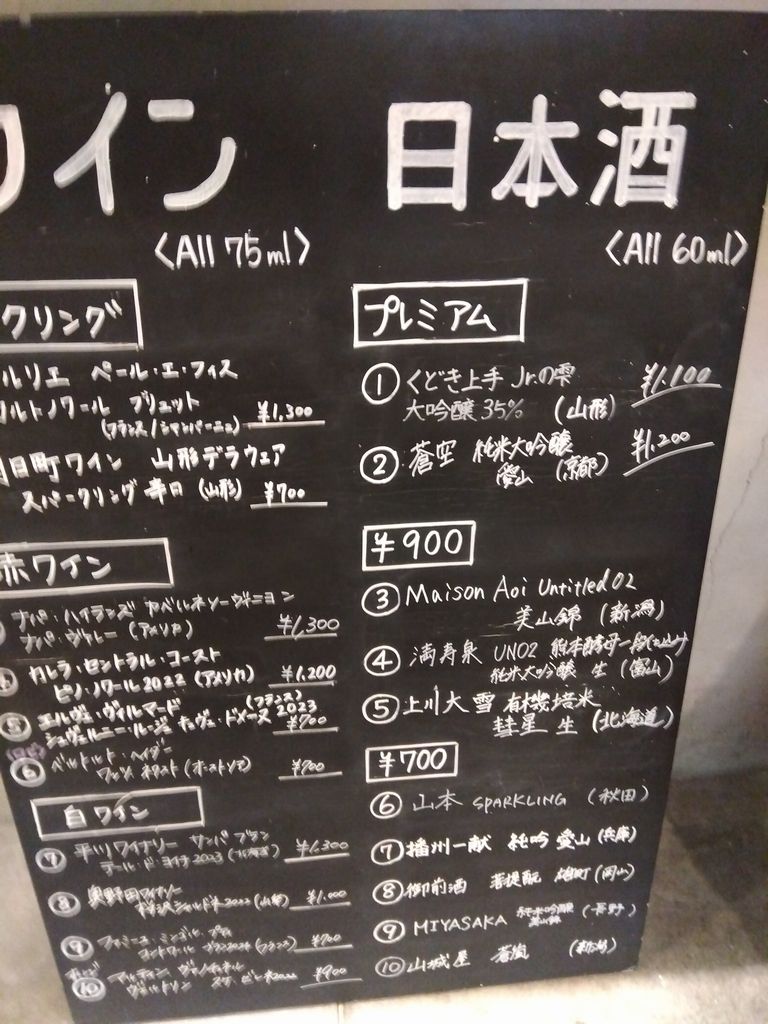 ワイン
〈All 75ml〉
クリング
ルリエ ペール・エ・フィス
ルトノワール ブリュット
(フランス/シャンパーニュ) ¥1,300
日町ワイン 山形デラウェア
スパークリング 辛口 (山形) ¥700
赤ワイン
ナパ・ハイランズ カベルネソーヴィニヨン
ナパ・ヴァレー (アメリカ) ¥1,300
カレラ・セントラル・コースト
ピノ・ノワール2022 (アメリカ) ¥1,200
⑤ エルヴェ・ヴィルマード (フランス)
シュヴェルニー・ルージュ キュヴェ・ドメーヌ 2023 ¥700
⑥ ベルトルト・
(オーストリア) ¥900
白ワイン
⑦ 平川ワイナリー
テール・ド・ヨイチ2023 (北海道) ¥1,300
⑧ 奥野田ワイナリー
シャルドネ2022 (山梨) ¥1,000
⑨
2024 (フランス) ¥700
オレンジ
⑩ ¥900
日本酒
〈All 60ml〉
プレミアム
① くどき上手 Jr.の雫 ¥1,100
大吟醸 35% (山形)
② 蒼空 純米大吟醸 ¥1,200
愛山 (京都)
¥900
③ Maison Aoi Untitled 02
美山錦 (新潟)
④ 満寿泉 UNO2 熊本酵母一段仕込み
純米大吟醸 生 (富山)
⑤ 上川大雪 有機栽培米
彗星 生 (北海道)
¥700
⑥ 山本 SPARKLING (秋田)
⑦ 播州一献 純吟 愛山 (兵庫)
⑧ 御前酒 菩提酛 雄町 (岡山)
⑨ MIYASAKA 純米吟醸 美山錦 (長野)
⑩ 山城屋 蒼嵐 (新潟)